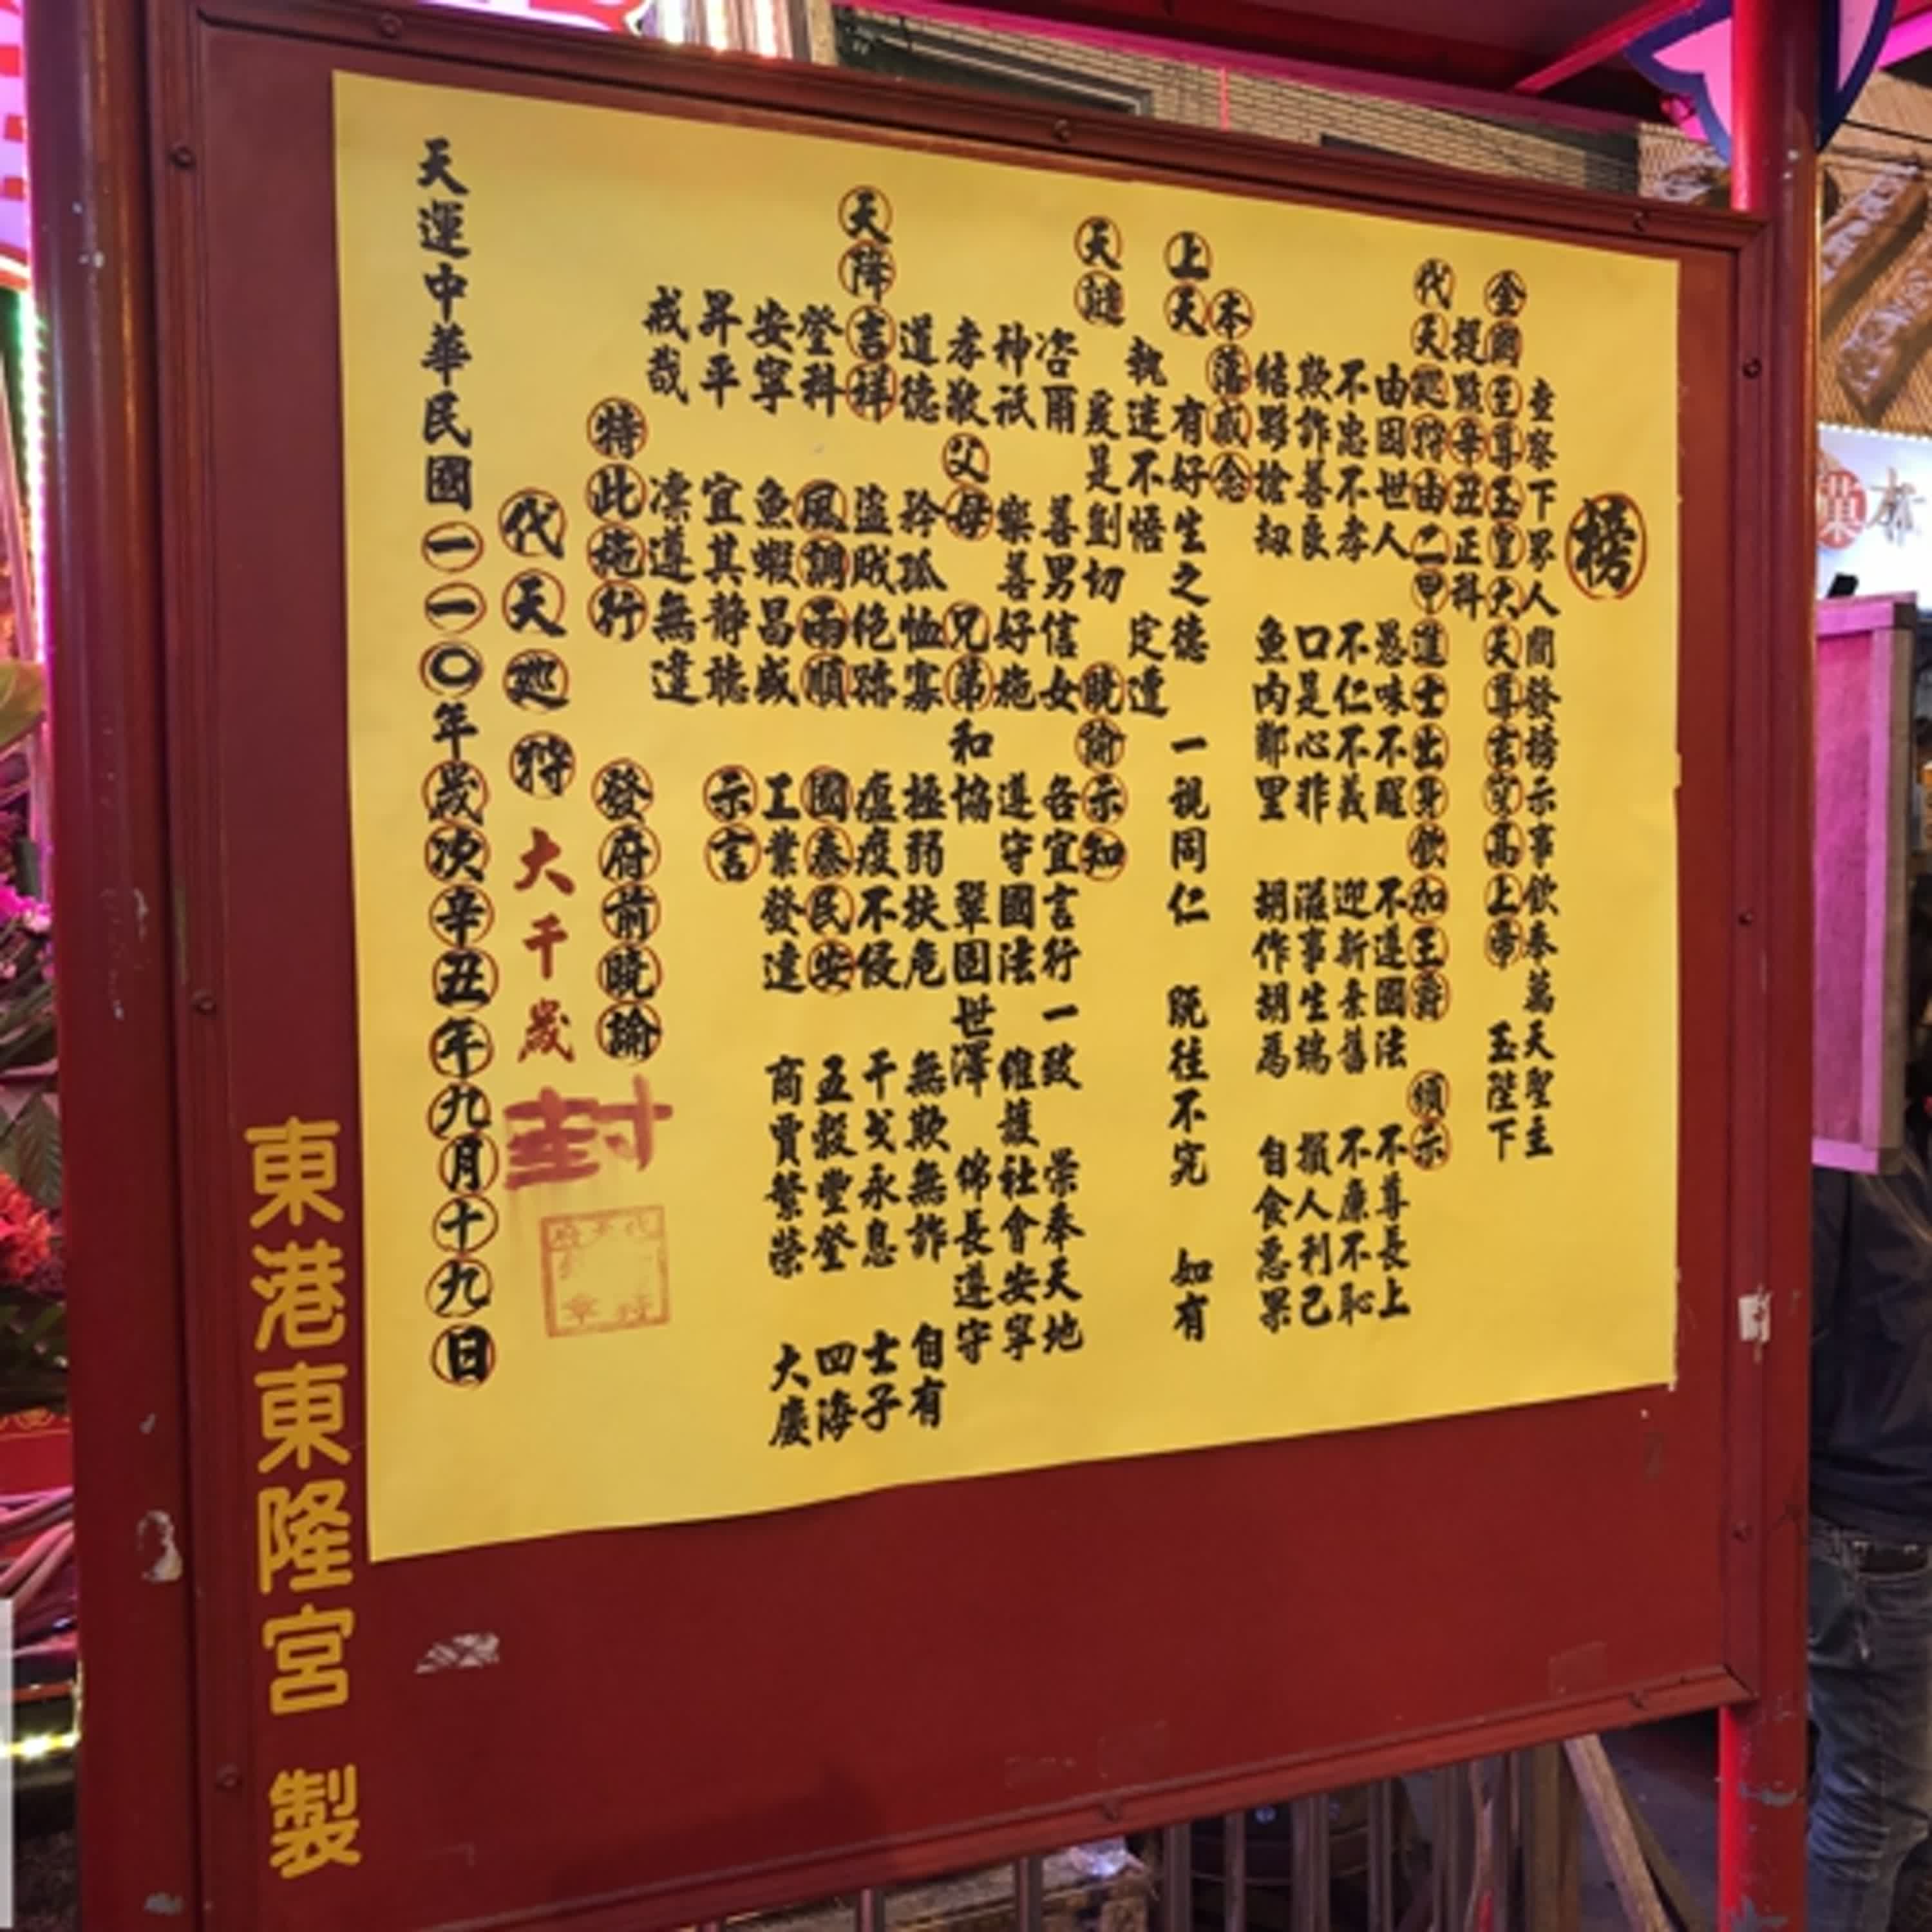 榜
查察下界人間發榜示事飲奉萬天聖主
金闕至尊玉皇大天尊玄穹高上帝 玉陛下
提點辛丑正科
代天巡狩由二甲進士出身飲加王爵 頒示
由因世人 愚昧不醒 不遵國法 不尊長上
不忠不孝 不仁不義 迎新棄舊 不廉不恥
欺詐善良 口是心非 滋事生端 損人利己
結夥搶劫 魚肉鄰里 胡作胡為 自食惡果
本藩感念
上天 有好生之德 一視同仁 既往不究 如有
執迷不悟 定遭
天譴 爰是剴切 曉諭示知
咨爾 善男信女 各宜言行一致 崇奉天地
神祇 樂善好施 遵守國法 維護社會安寧
孝敬父母 兄弟和協 鞏固世澤 佈長遵守
道德 矜孤恤寡 極弱扶危 無欺無詐 自有
天降吉祥 盜賊絶跡 瘟疫不侵 干戈永息 士子
登科 風調雨順 國泰民安 五穀豐登 四海
安寧 魚蝦昌盛 工業發達 商賈繁榮 大慶
昇平 宜其靜聽 示言
戒哉 凜遵無違
特此施行 發府前曉諭
代天巡狩 大千歲 封
天運中華民國一一〇年歲次辛丑年九月十九日
東港東隆宮 製